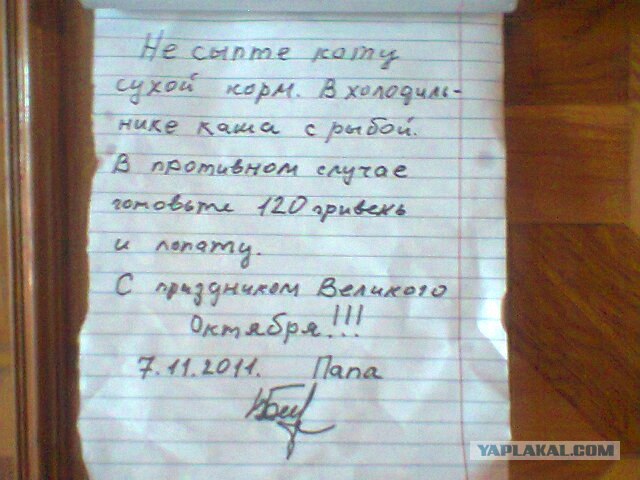 Не сыпте коту
сухой корм. В холодиль-
нике каша с рыбой.
В противном случае
готовьте 120 гривень
и лопату.
С праздником Великого
Октября!!!
7.11.2011. Папа
YAPLAKAL.COM